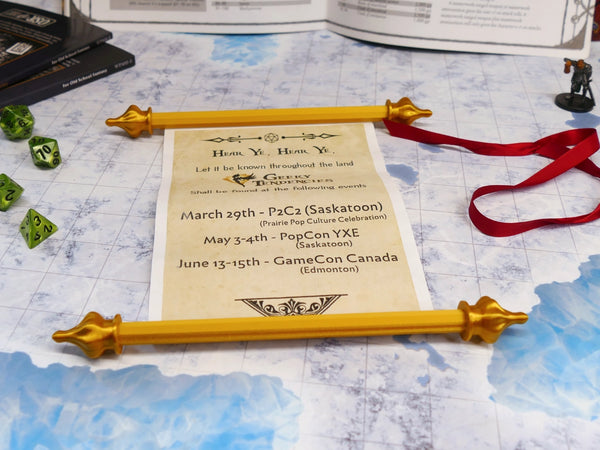 Hear Ye, Hear Ye,
Let it be known throughout the land
Geeky
Tendencies
Shall be found at the following events
March 29th - P2C2 (Saskatoon)
(Prairie Pop Culture Celebration)
May 3-4th - PopCon YXE
(Saskatoon)
June 13-15th - GameCon Canada
(Edmonton)